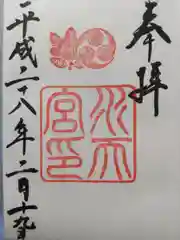 奉拝
水天宮印
平成二十八年二月十九日